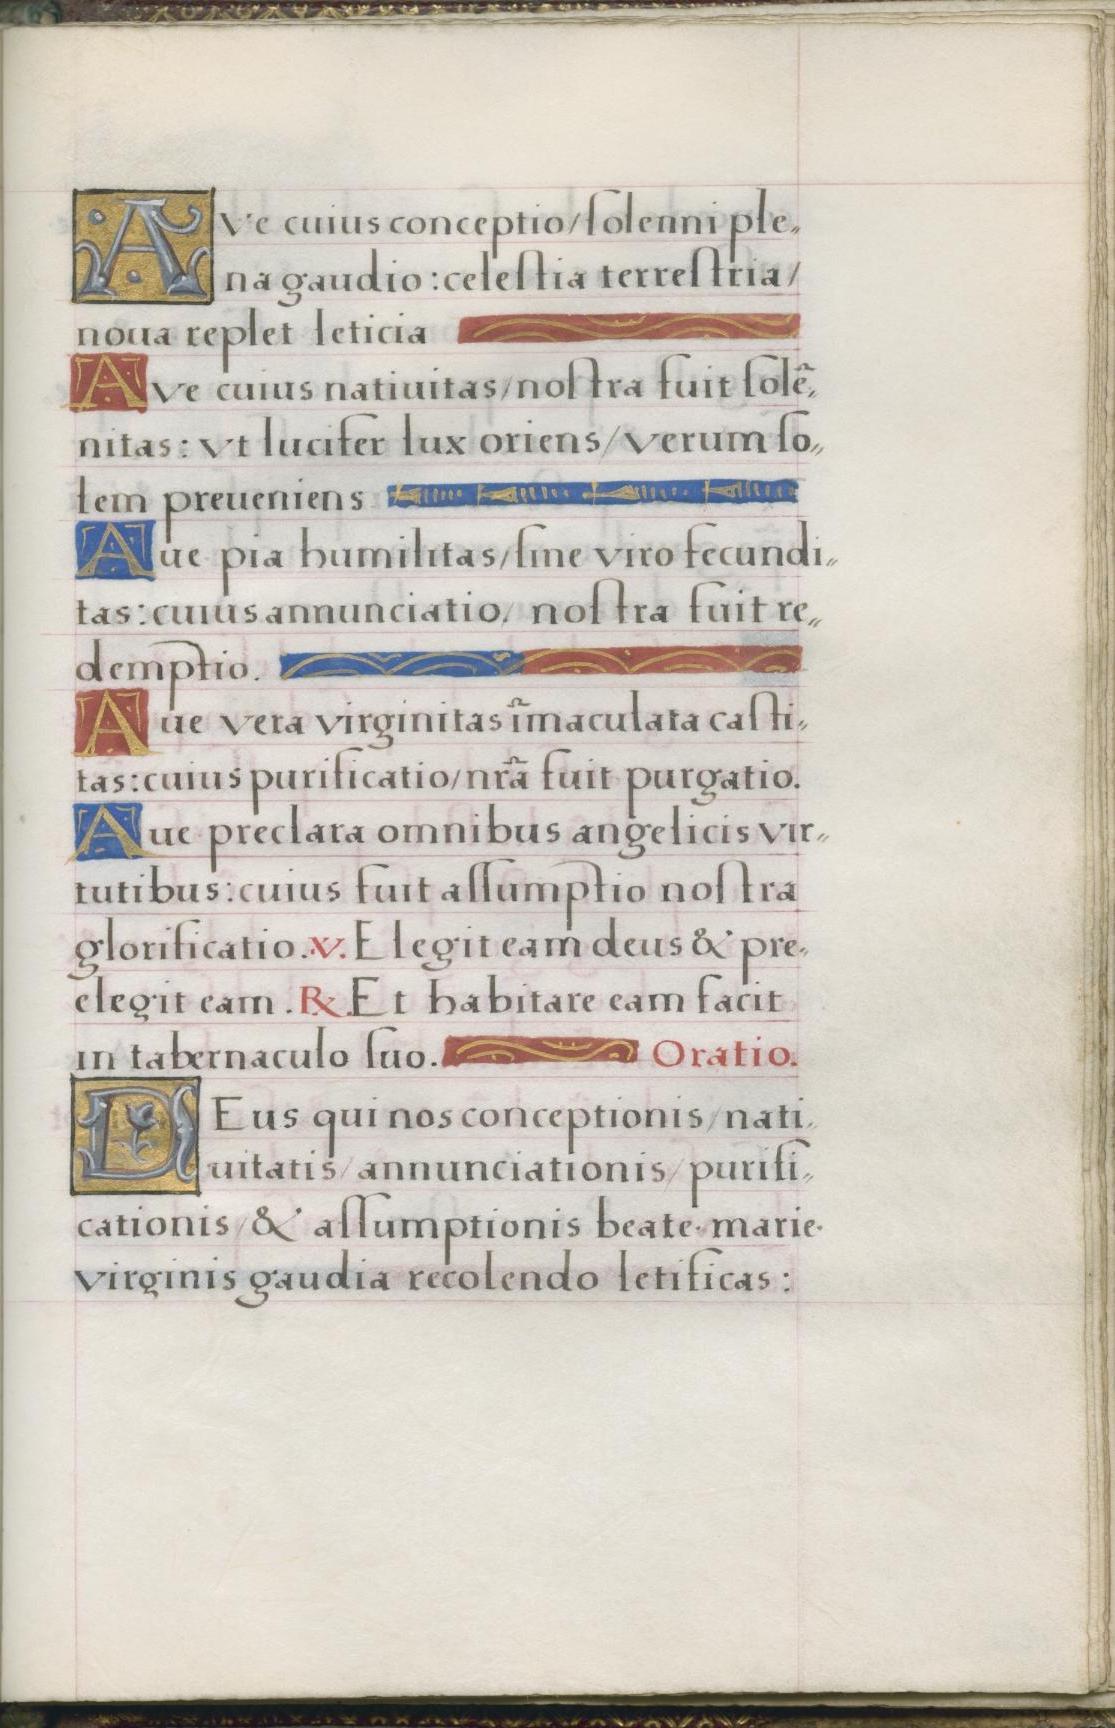 AVe cuius conceptio/ſolenni ple„
na gaudio:celeſtia terreſtria/
noua replet leticia
AVe cuius natiuitas/noſtra fuit ſolẽ„
nitas: vt lucifer lux oriens/verum ſo„
lem preueniens
Aue pia humilitas/ſine viro fecundi„
tas:cuius annunciatio/ noſtra fuit re„
demptio.
Aue vera virginitas im̃aculata caſti„
tas:cuius purificatio/nrã fuit purgatio.
Aue preclara omnibus angelicis vir„
tutibus:cuius fuit aſſumptio noſtra
glorificatio.v.Elegit eam deus & pre„
elegit eam.℟.Et habitare eam facit
in tabernaculo ſuo. Oratio.
DEus qui nos conceptionis/nati„
uitatis/annunciationis/purifi„
cationis/& aſſumptionis beate·marie·
virginis gaudia recolendo letificas: